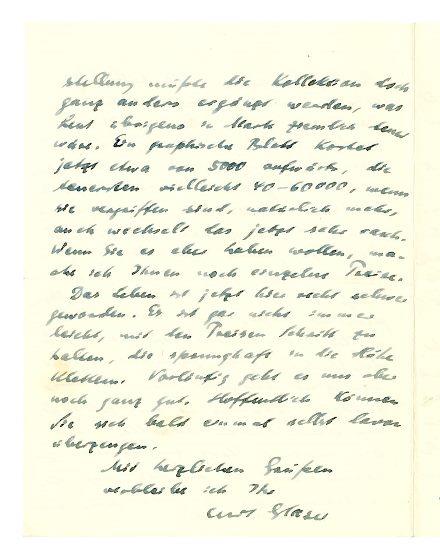 stellung müßte die Kollektion doch
ganz anders ergänzt werden, was
übrigens in Mark ziemlich teuer
wäre. Ein graphisches Blatt kostet
jetzt etwa von 5000 aufwärts, die
teuersten vielleicht 40-60000, wenn
sie vergriffen sind, natürlich mehr,
auch wechselt das jetzt sehr rasch.
Wenn Sie es aber haben wollen, ma-
che ich Ihnen noch einzelne Preise.
Das Leben ist jetzt hier recht schwer
geworden. Es ist gar nicht immer
leicht, mit den Preisen Schritt zu
halten, die sprunghaft in die Höhe
klettern. Vorläufig geht es uns aber
noch ganz gut. Hoffentlich können
Sie sich bald einmal selbst davon
überzeugen.
Mit herzlichen Grüßen
verbleibe ich Ihr
Curt Glaser